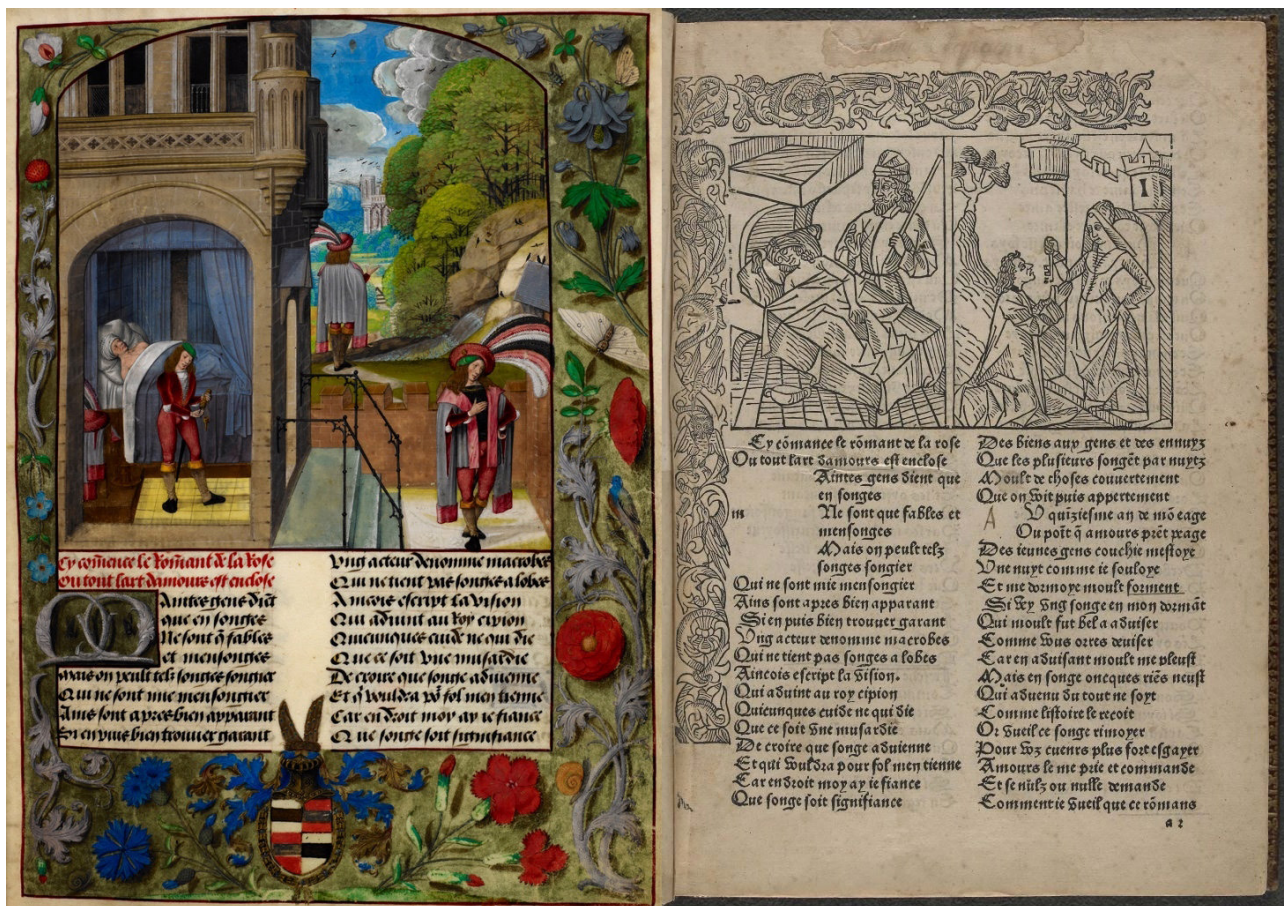 Cy cõmence le Rom̃ant de la Rose
Ou tout lart damours est enclose
Aintes gens diẽt
que en songes
Ne sont q̃ fables
et mensonges
Mais on peult telz songes songier
Qui ne sont mie mensongier
Ains sont apres bien apparant
Si en puis bien trouuer garant
Vng acteur denomme macrobes
Qui ne tient pas songes a lobes
Aincois escript la vision
Qui aduint au Roy cipion
Quicunques cuide ne qui die
Que ce soit vne musardie
De croire que songe aduienne
Et q̃ vouldra po᷑ fol men tienne
Car en droit moy ay ie fiance
Que songe soit signifiance
Cy cõmance le rõmant de la rose
Ou tout lart damours est enclose
Aintes gens dient que
en songes
m Ne sont que fables et
mensonges
Mais on peult telz
songes songier
Qui ne sont mie mensongier
Ains sont apres bien apparant
Si en puis bien trouuer garant
Vng acteur denomme macrobes
Qui ne tient pas songes a lobes
Aincois escript la vision.
Qui aduint au roy cipion
Quicunques cuide ne qui die
Que ce soit vne musardie
De croire que songe aduienne
Et qui vouldra pour fol men tienne
Car endroit moy ay ie fiance
Que songe soit signifiance
Des biens aux gens et des ennuyz
Que les plusieurs songẽt par nuytz
Moult de choses couuertement
Que on voit puis appertement
A V quĩziesme an de mõ eage
Ou poĩt q̃ amours prẽt peage
Des ieunes gens couchie mestoye
Vne nuyt comme ie souloye
Et me dormoye moult forment
Si vey vng songe en mon dormãt
Qui moult fut bel a aduiser
Comme vous orres deuiser
Car en aduisant moult me pleust
Mais en songe oncques riẽs neust
Qui aduenu du tout ne soyt
Comme listoire le recoit
Or vueil ce songe rimoyer
Pour voz cuenrs plus fort esgayer
Amours le me prie et commande
Et se nulz ou nulle demande
Comment ie vueil que ce rõmans
a 2